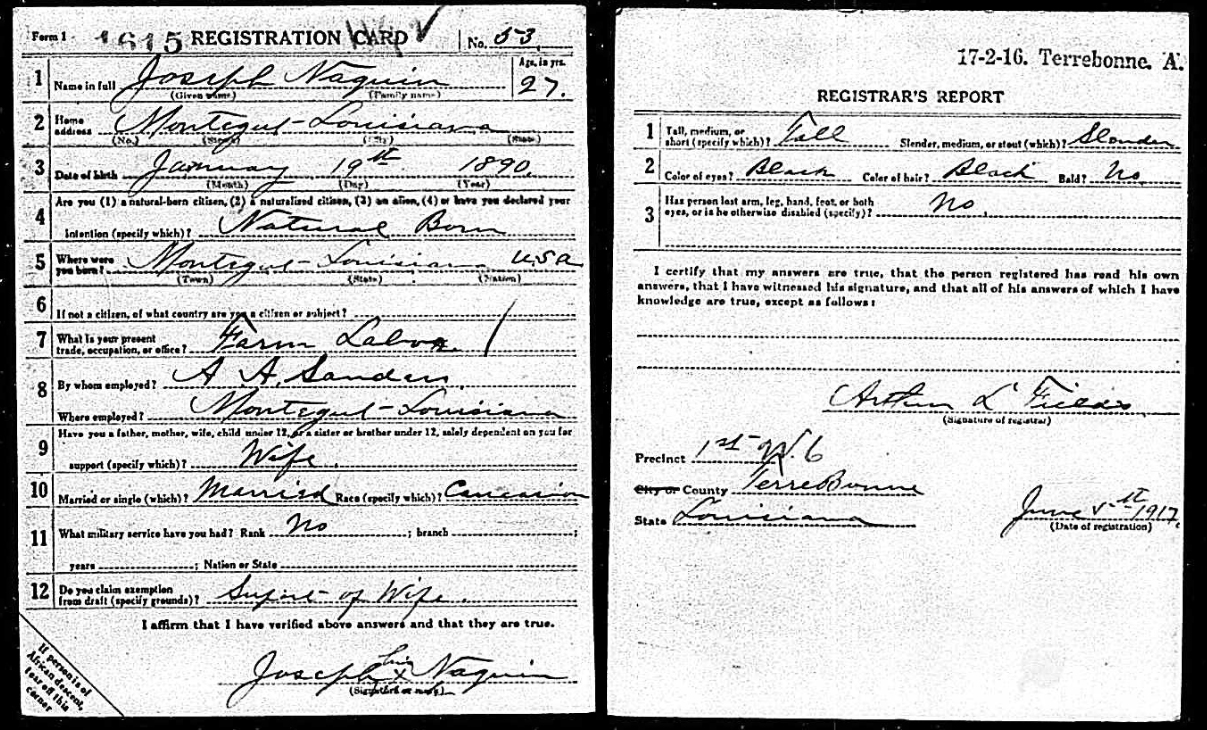 Form 1 1615 REGISTRATION CARD No. 53
1 Name in full Joseph Naquin Age, in yrs. 27.
(Given name) (Family name)
2 Home address Montegut - Louisiana
(No.) (Street) (City) (State)
3 Date of birth January 19th 1890.
(Month) (Day) (Year)
4 Are you (1) a natural-born citizen, (2) a naturalized citizen, (3) an alien, (4) or have you declared your
intention (specify which)? Natural Born
5 Where were you born? Montegut - Louisiana USA
(Town) (State) (Nation)
6 If not a citizen, of what country are you a citizen or subject?
7 What is your present trade, occupation, or office? Farm Labor.
8 By whom employed? A. A. Sanders.
Where employed? Montegut - Louisiana
9 Have you a father, mother, wife, child under 12, or a sister or brother under 12, solely dependent on you for
support (specify which)? Wife.
10 Married or single (which)? Married Race (specify which)? Caucasian
11 What military service have you had? Rank No ; branch ;
years ; Nation or State
12 Do you claim exemption from draft (specify grounds)? Suport - of Wife.
I affirm that I have verified above answers and that they are true.
Joseph his x Naquin
(Signature or mark)
If person is of
African descent,
tear off this
corner
17-2-16. Terrebonne. A.
REGISTRAR'S REPORT
1 Tall, medium, or short (specify which)? Tall Slender, medium, or stout (which)? Slender
2 Color of eyes? Black Color of hair? Black Bald? No
3 Has person lost arm, leg, hand, foot, or both eyes, or is he otherwise disabled (specify)? No.
I certify that my answers are true, that the person registered has read his own
answers, that I have witnessed his signature, and that all of his answers of which I have
knowledge are true, except as follows:
Arthur L
(Signature of registrar)
Precinct 1st W. 6
City or County TerreBonne
State Louisiana
June 5th 1917.
(Date of registration)